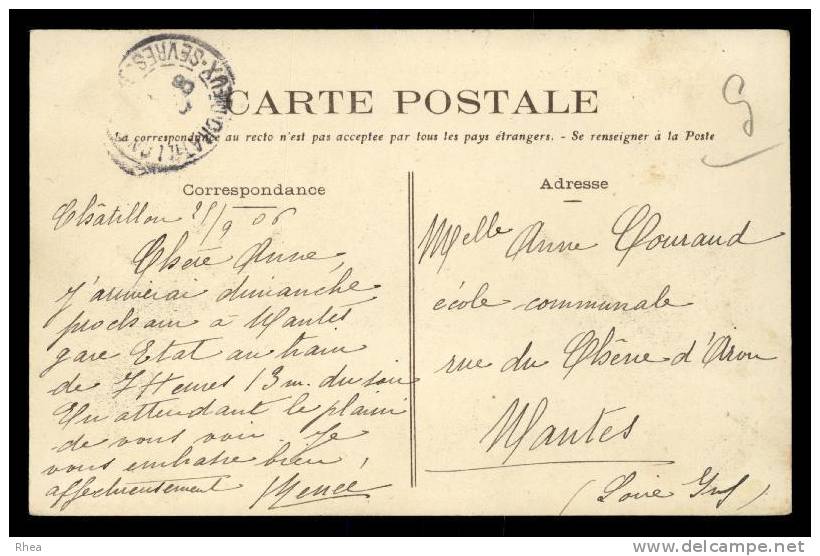 CARTE POSTALE
La correspondance au recto n'est pas acceptee par tous les pays étrangers. - Se renseigner à la Poste
Correspondance
Châtillon 25/9 06
Chère Anne,
J'arriverai dimanche
prochain à Nantes
gare Etat au train
de 7 Heures 13 m. du soir
En attendant le plaisir
de vous voir. Je
vous embrasse bien
affectueusement
Adresse
Melle Anne Couraud
école communale
rue du Chêne d'Aron
Nantes
(Loire Inf)
Rhea
www.delcampe.net